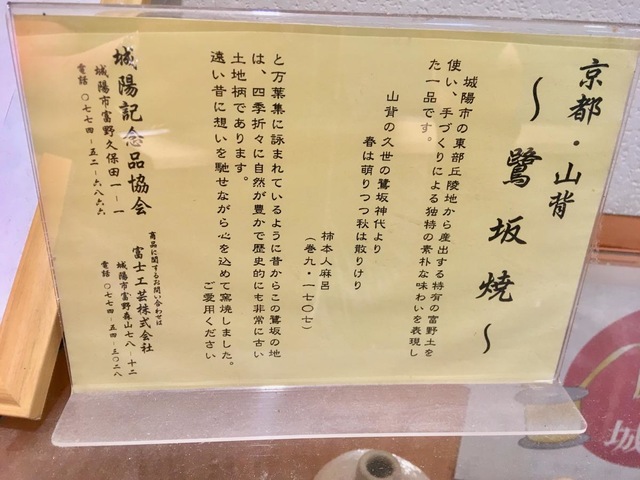 京都・山背
～鷺坂焼～
城陽市の東部丘陵地から産出する特有の富野土を
使い、手づくりによる独特の素朴な味わいを表現し
た一品です。
山背の久世の鷺坂神代より
春は萌りつつ秋は散りけり
柿本人麻呂
（巻九・一七〇七）
と万葉集に詠まれているように昔からこの鷺坂の地
は、四季折々に自然が豊かで歴史的にも非常に古い
土地柄であります。
遠い昔に想いを馳せながら心を込めて窯焼しました。
ご愛用ください
城陽記念品協会
城陽市富野久保田一‐一
電話 〇七七四‐五二‐六八六六
商品に関するお問い合わせは
富士工芸株式会社
城陽市富野森山七八‐十二
電話 〇七七四‐五四‐三〇二八
城